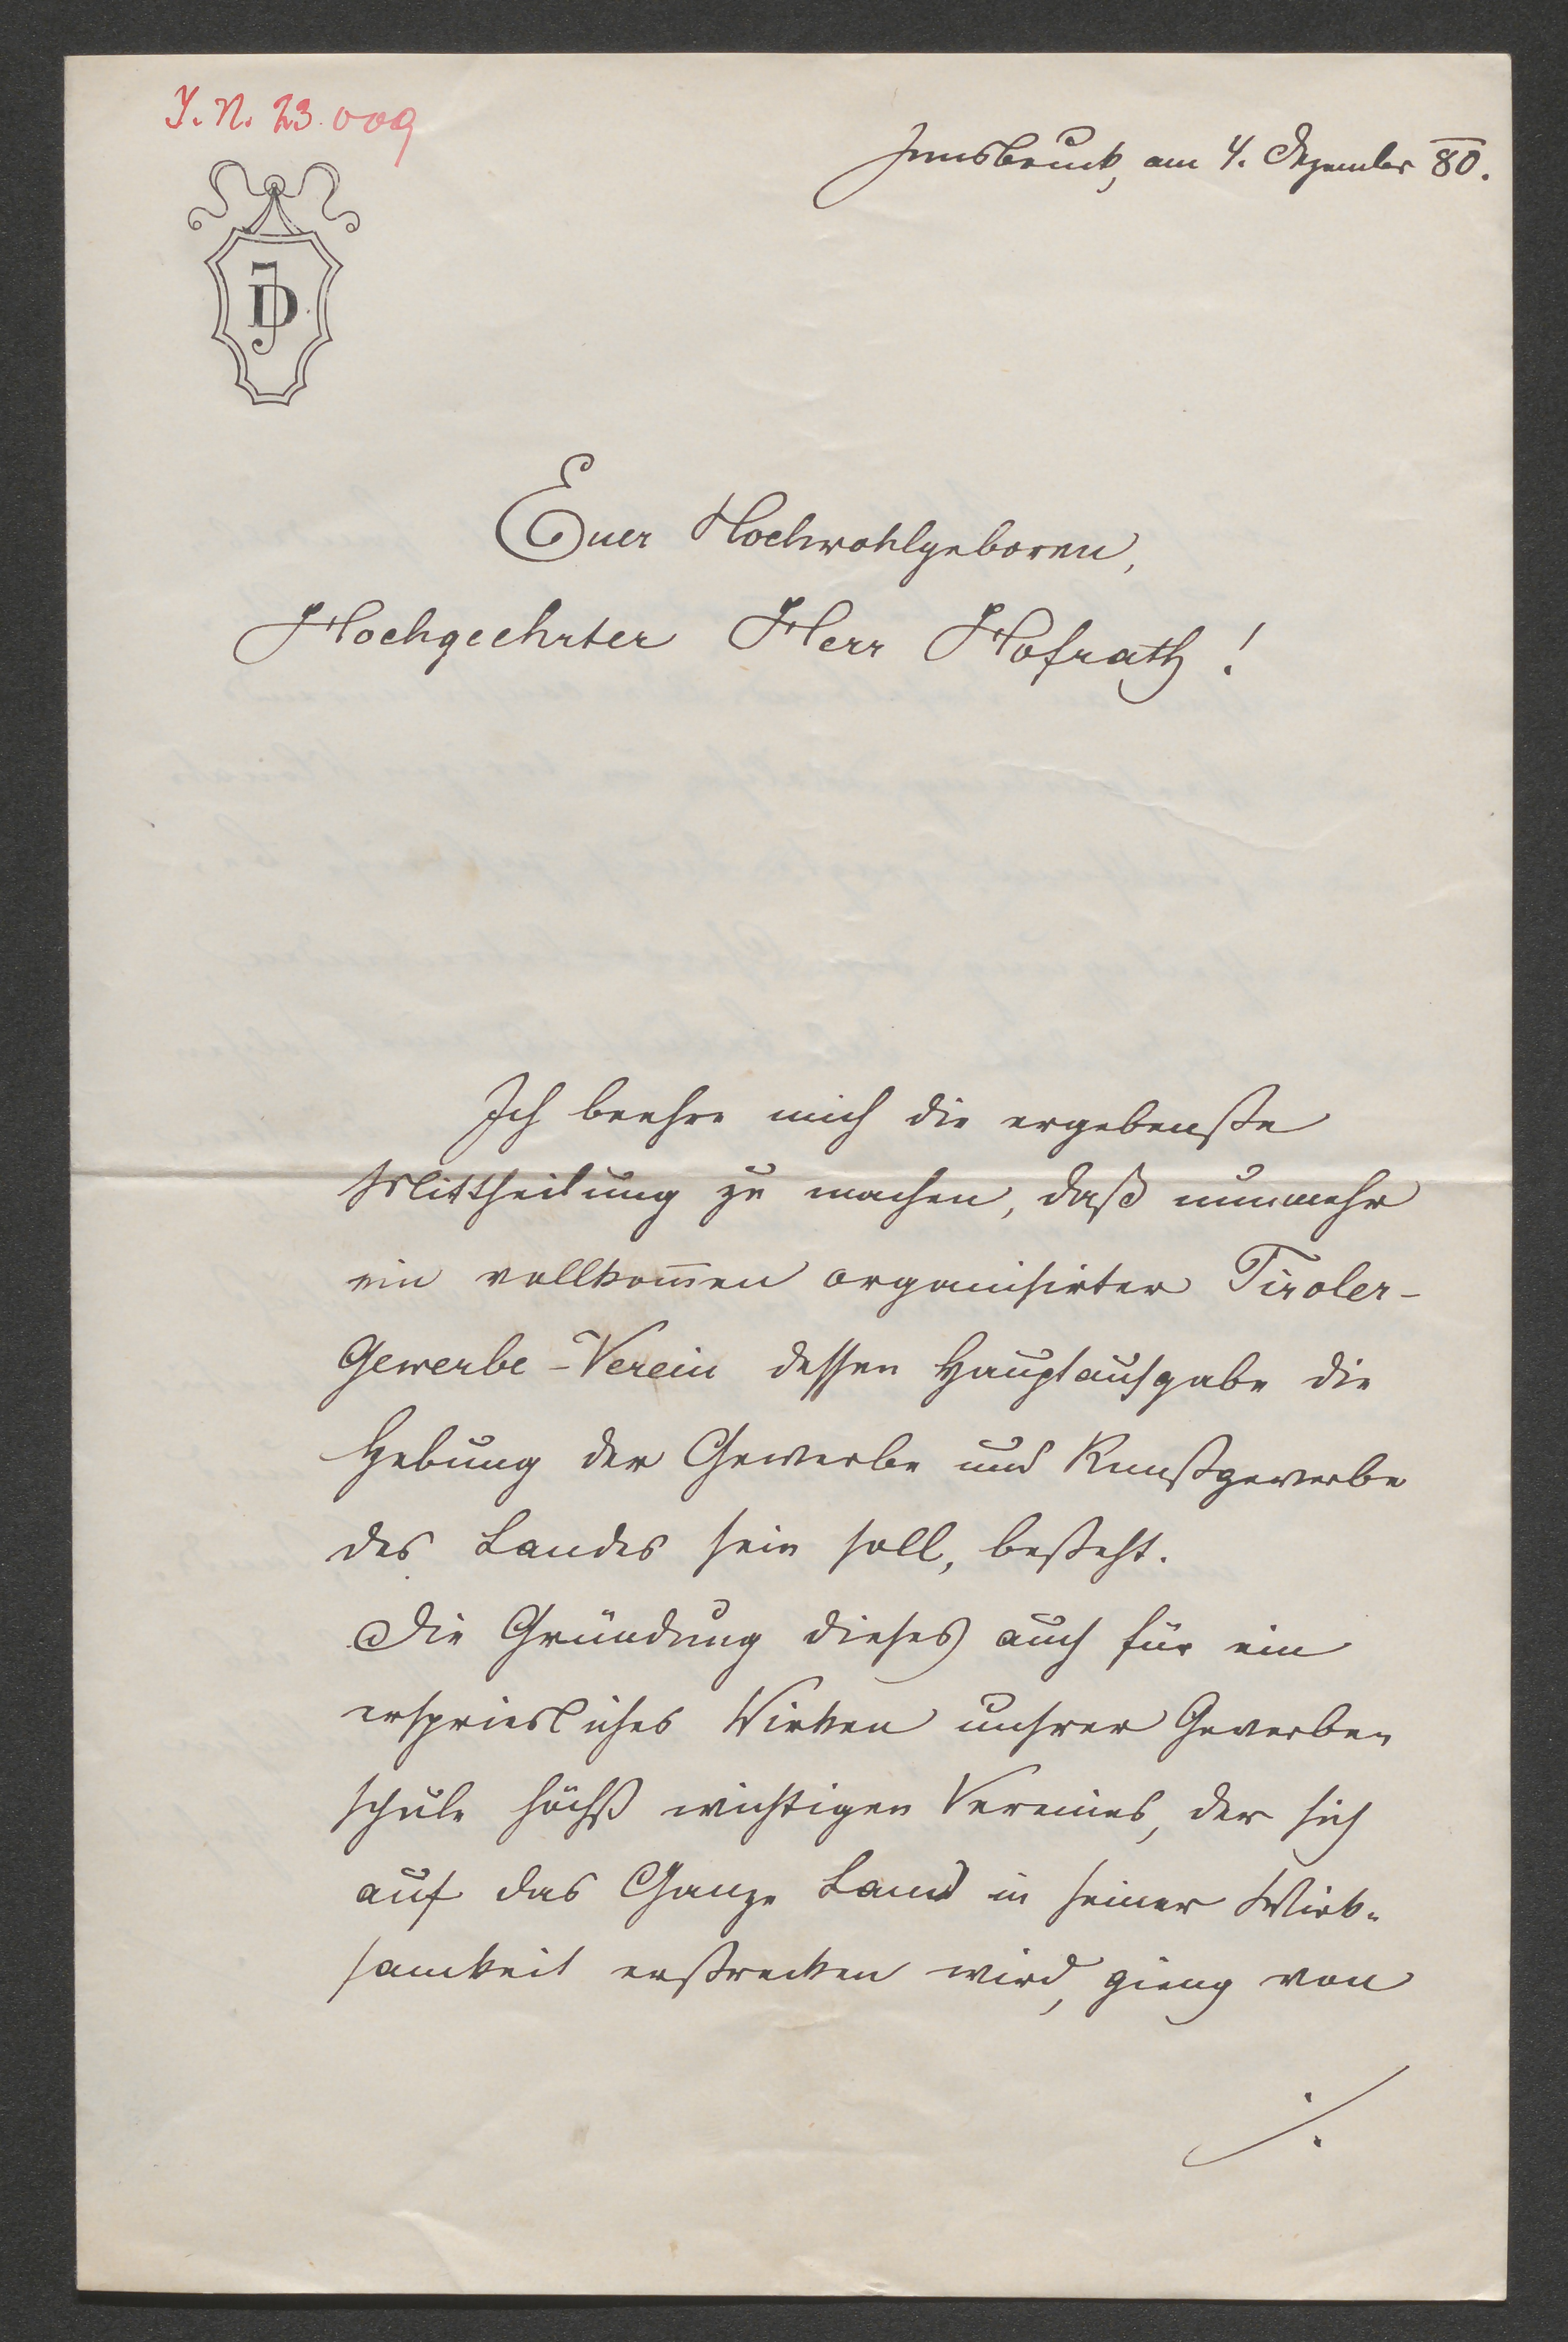 J. N. 23.009
Innsbruck, am 4. Dezember 80.
JD
Euer Hochwohlgeboren,
Hochgeehrter Herr Hofrath!
Ich beehre mich die ergebenste
Mittheilung zu machen, daß nunmehr
ein vollkom̅en organisirter Tiroler-
Gewerbe-Verein dessen Hauptaufgabe die
Hebung der Gewerbe und Kunstgewerbe
des Landes sein soll, besteht.
Die Gründung dieses auch für ein
ersprießliches Wirken unsrer Gewerbe=
schule höchst wichtigen Vereines, der sich
auf das Ganze Land in seiner Wirk=
samkeit erstrecken wird, gieng von
./.